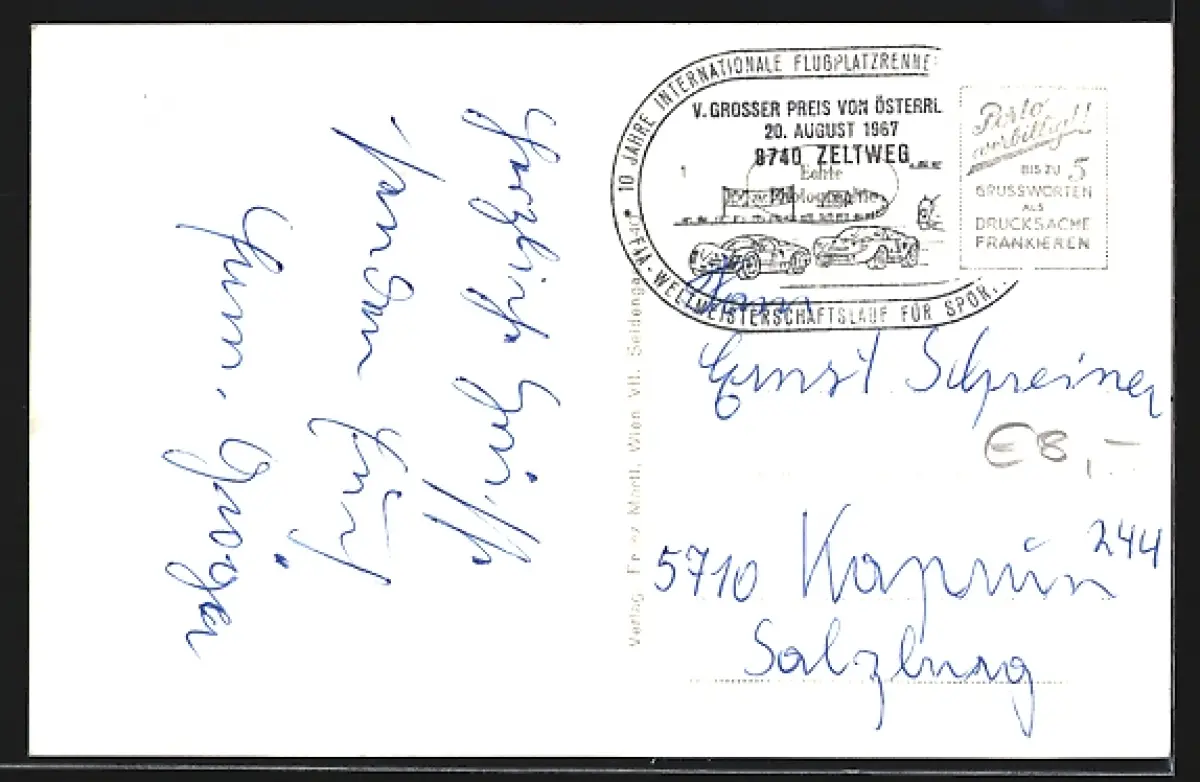 Herzliche Grüße
10 JAHRE INTERNATIONALE FLUGPLATZRENNE
V. GROSSER PREIS VON ÖSTERR
20. AUGUST 1967
8740 ZELTWEG
FAA-WELTMEISTERSCHAFTSLAUF FÜR SPOR
Echte
Photographie
Porto
verbilligt!
BIS ZU 5
GRUSSWORTEN
ALS
DRUCKSACHE
FRANKIEREN
Verlag Franz Mörtl, Wien VII. Seidenga
Ernst Schreiner
€8,-
5710 Kaprun 244
Salzburg